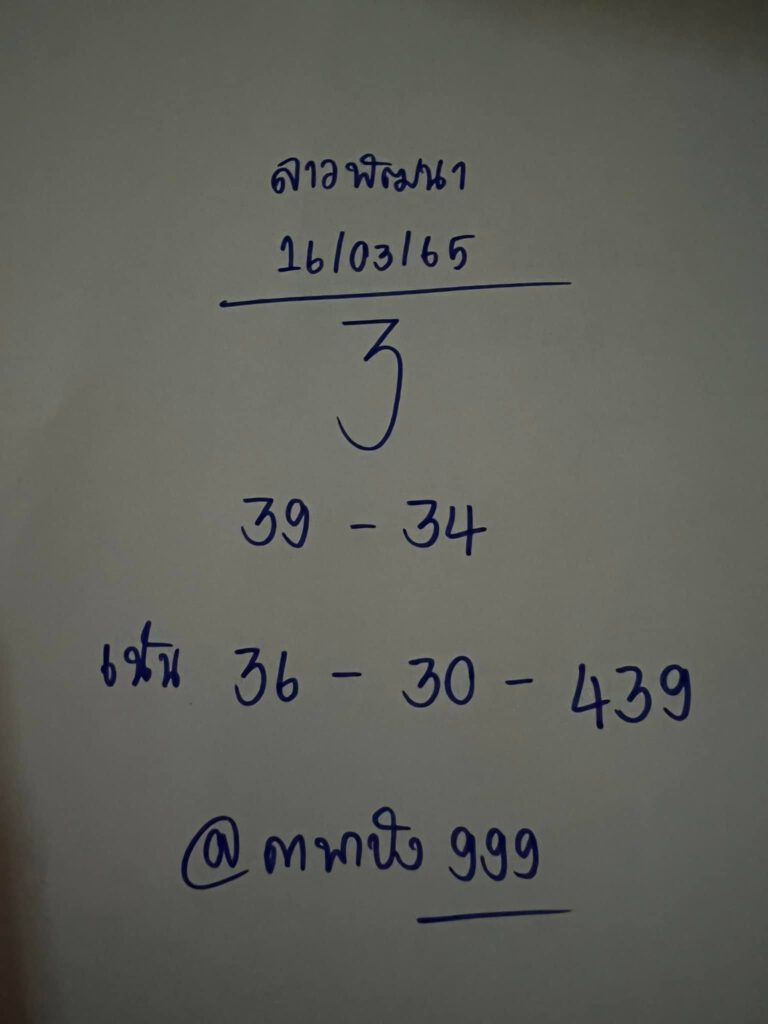 ลาวพัฒนา
16/03/65
3
39 - 34
เน้น 36 - 30 - 439
@ตาพาปัง 999